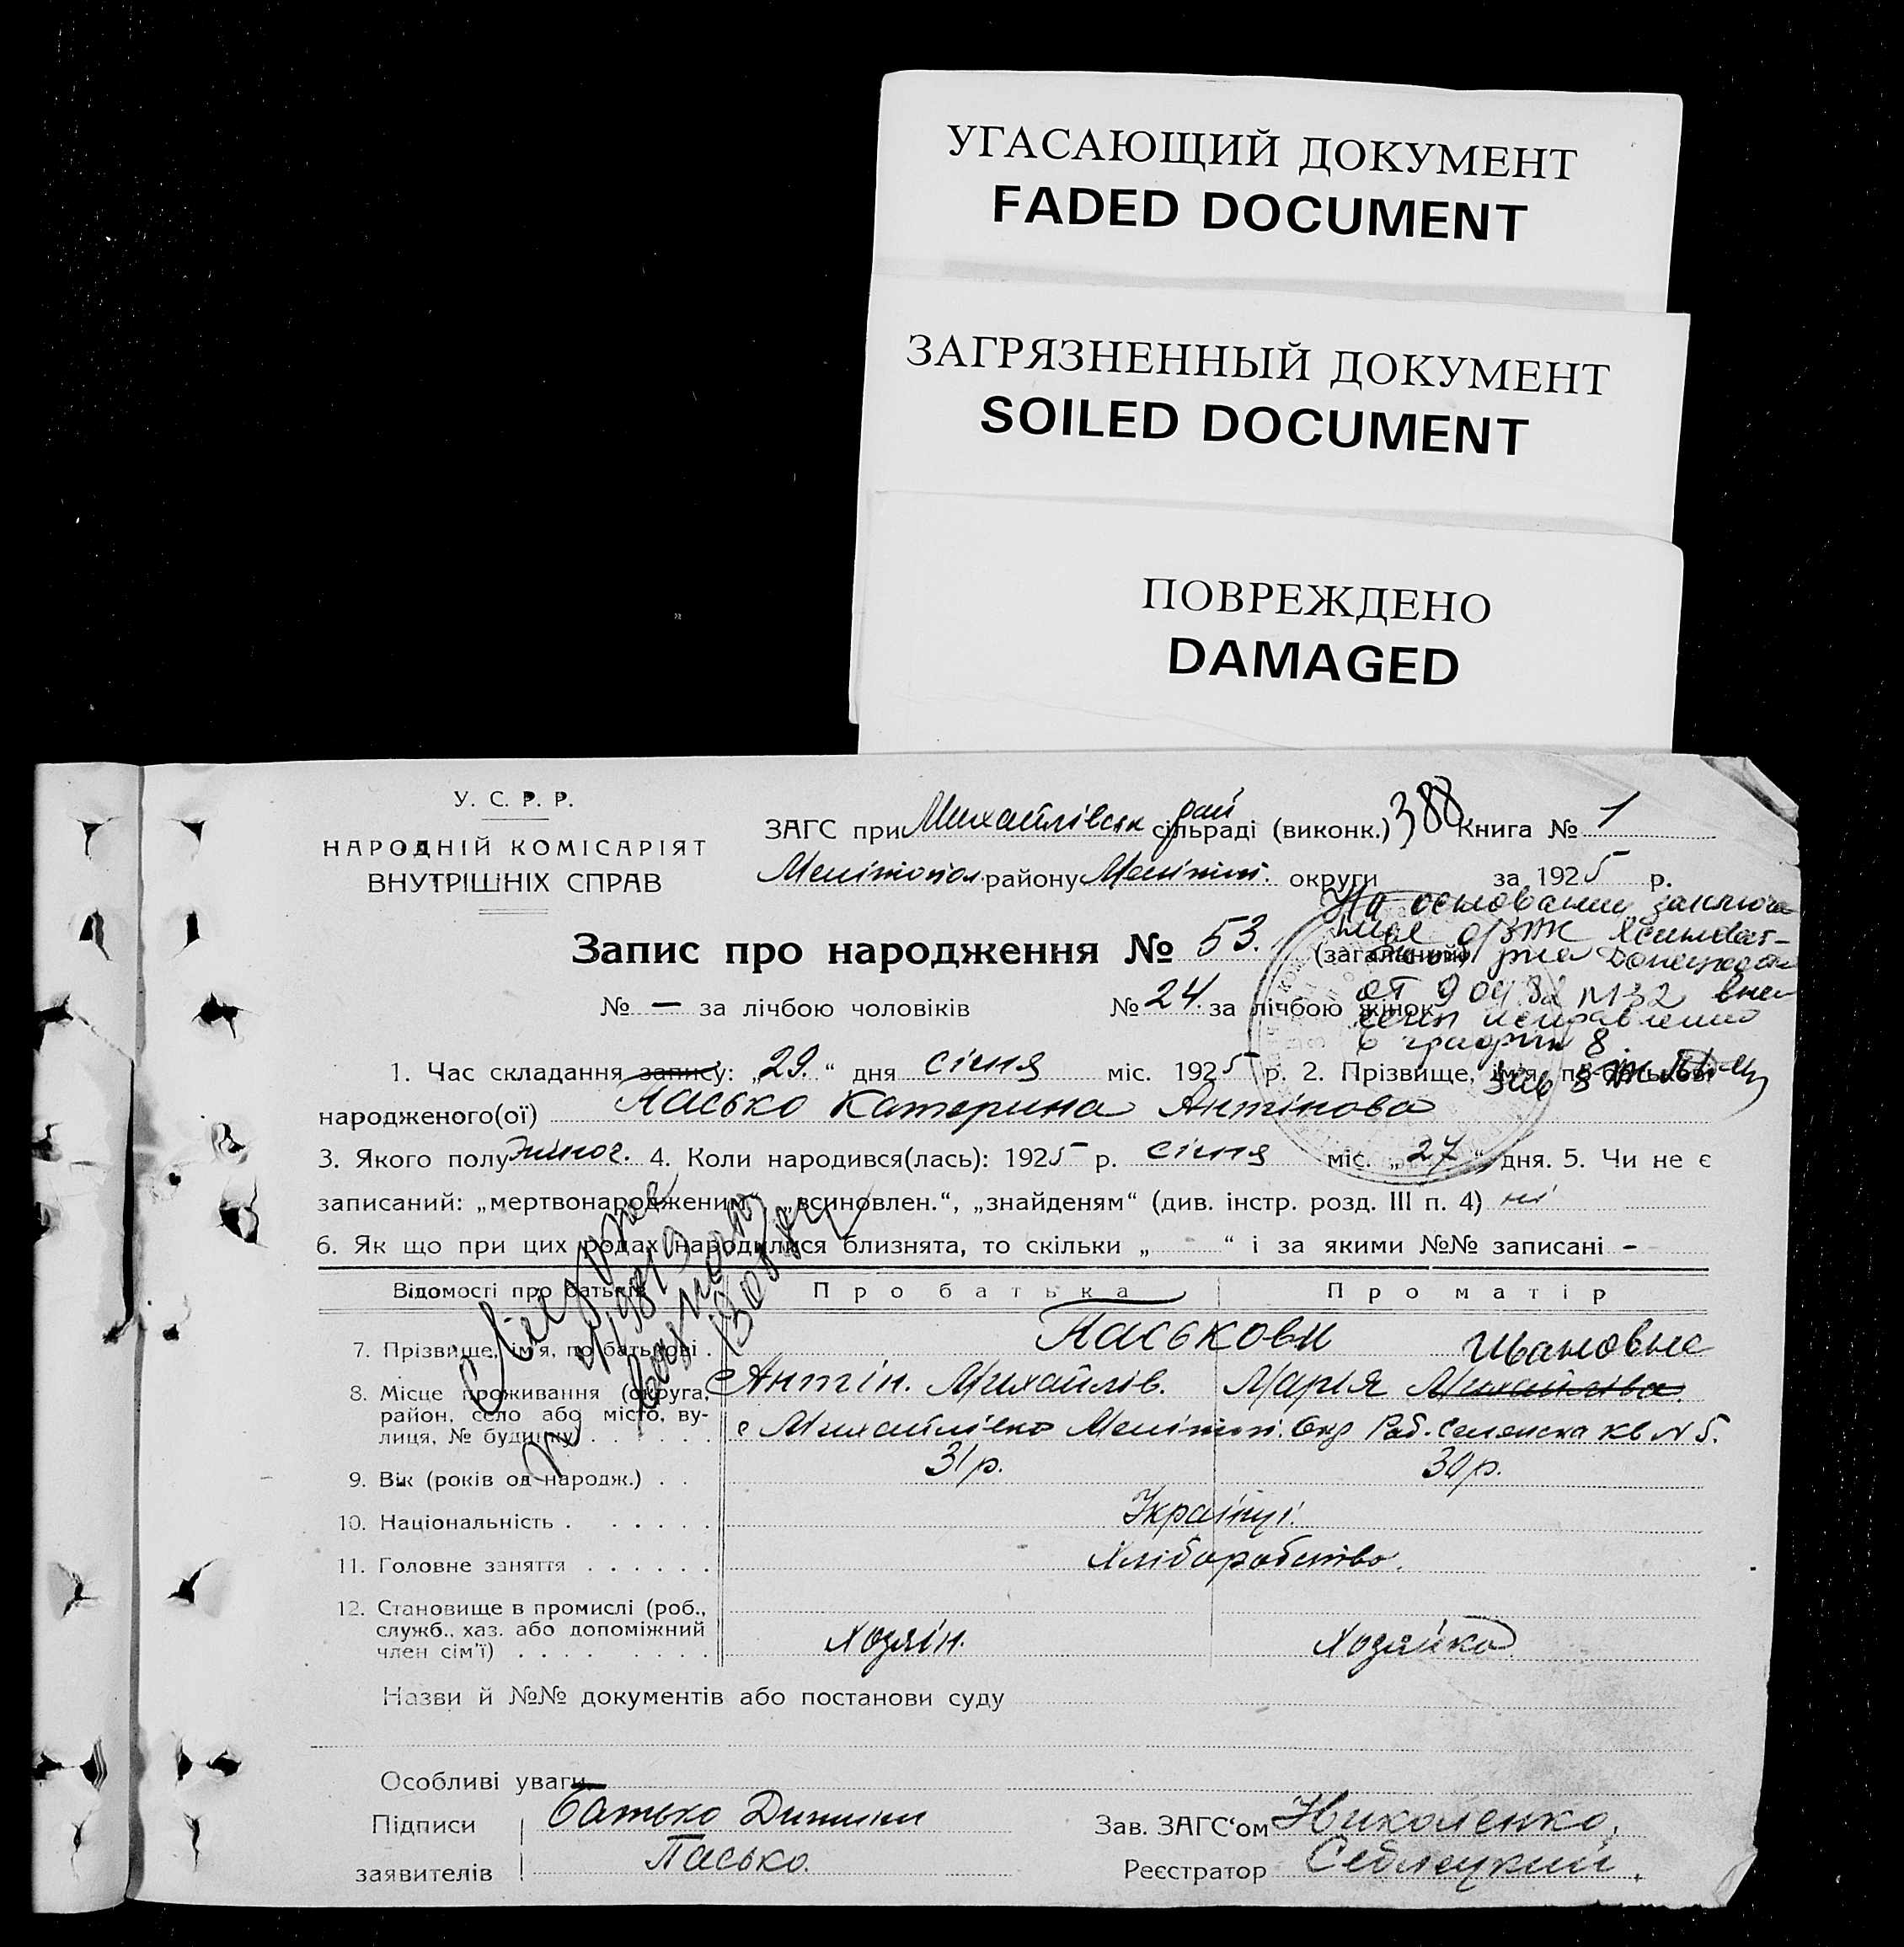 УГАСАЮЩИЙ ДОКУМЕНТ
FADED DOCUMENT
ЗАГРЯЗНЕННЫЙ ДОКУМЕНТ
SOILED DOCUMENT
ПОВРЕЖДЕНО
DAMAGED
У. С. Р. Р.
НАРОДНІЙ КОМІСАРІЯТ
ВНУТРІШНІХ СПРАВ
ЗАГС при Михайлівськ рай сільраді (виконк.) 388 Книга № 1
Мелітопол. району Меліттоп. округи за 1925 р.
На основании заключе
от 9 04 82 N 32 вне
сены исправления
в графы 8.
Запис про народження № 53. (загальний)
№ — за лічбою чоловіків № 24. за лічбою жінок
1. Час складання запису: „29.“ дня січня міс. 1925 р. 2. Прізвище, ім'я, по-батькові
народженого(ої) Пасько Катерина Антінова
3. Якого полу жіноч. 4. Коли народився(лась): 1925 р. січня міс. „27“ дня. 5. Чи не є
записаний: „мертвонародженим“, „всиновлен.“, „знайденям“ (див. інстр. розд. III п. 4) ні
6. Як що при цих родах народилися близнята, то скільки „ - “ і за якими №№ записані -
Відомості про батьків Про батька Про матір
7. Прізвище, ім'я, по батькові . Паськови Ивановне
8. Місце проживання (округа, Антін. Михайлів. Марія Михайлівна.
район, село або місто, ву-
лиця, № будинку) . . . . . . с Михайлівка Меліттоп. Окр кв N 5.
9. Вік (років од народж.) . . 31 р. 30 р.
10. Національність . . . . . . Українці.
11. Головне заняття . . . . . . Хліборобство.
12. Становище в промислі (роб.,
служб., хаз. або допоміжний
член сім'ї) . . . . . . . . Хозяїн. Хозяйка
Назви й №№ документів або постанови суду
Особливі уваги
Підписи Батько Дитини Зав. ЗАГС'ом Николенко.
заявителів Пасько. Реєстратор Седлецкий.